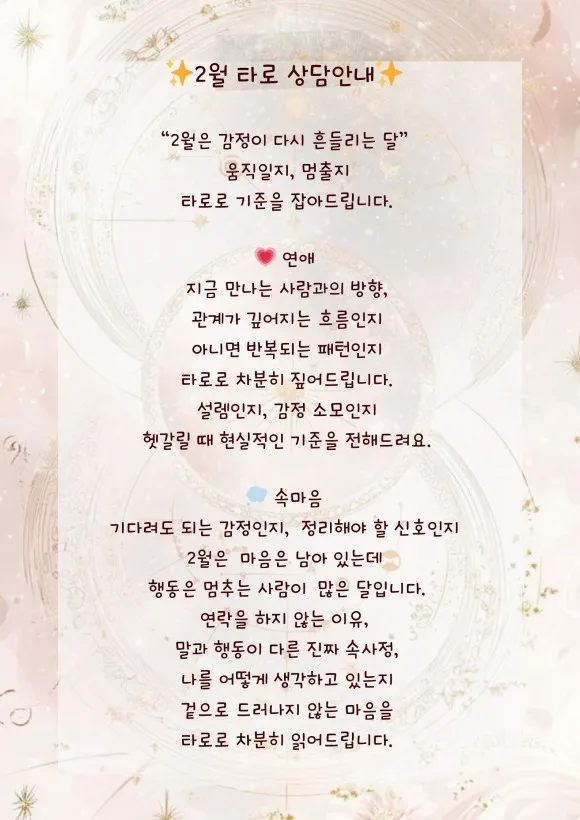 ✨2월 타로 상담안내✨
“2월은 감정이 다시 흔들리는 달”
움직일지, 멈출지
타로로 기준을 잡아드립니다.
💗 연애
지금 만나는 사람과의 방향,
관계가 깊어지는 흐름인지
아니면 반복되는 패턴인지
타로로 차분히 짚어드립니다.
설렘인지, 감정 소모인지
헷갈릴 때 현실적인 기준을 전해드려요.
속마음
기다려도 되는 감정인지, 정리해야 할 신호인지
2월은 마음은 남아 있는데
행동은 멈추는 사람이 많은 달입니다.
연락을 하지 않는 이유,
말과 행동이 다른 진짜 속사정,
나를 어떻게 생각하고 있는지
겉으로 드러나지 않는 마음을
타로로 차분히 읽어드립니다.